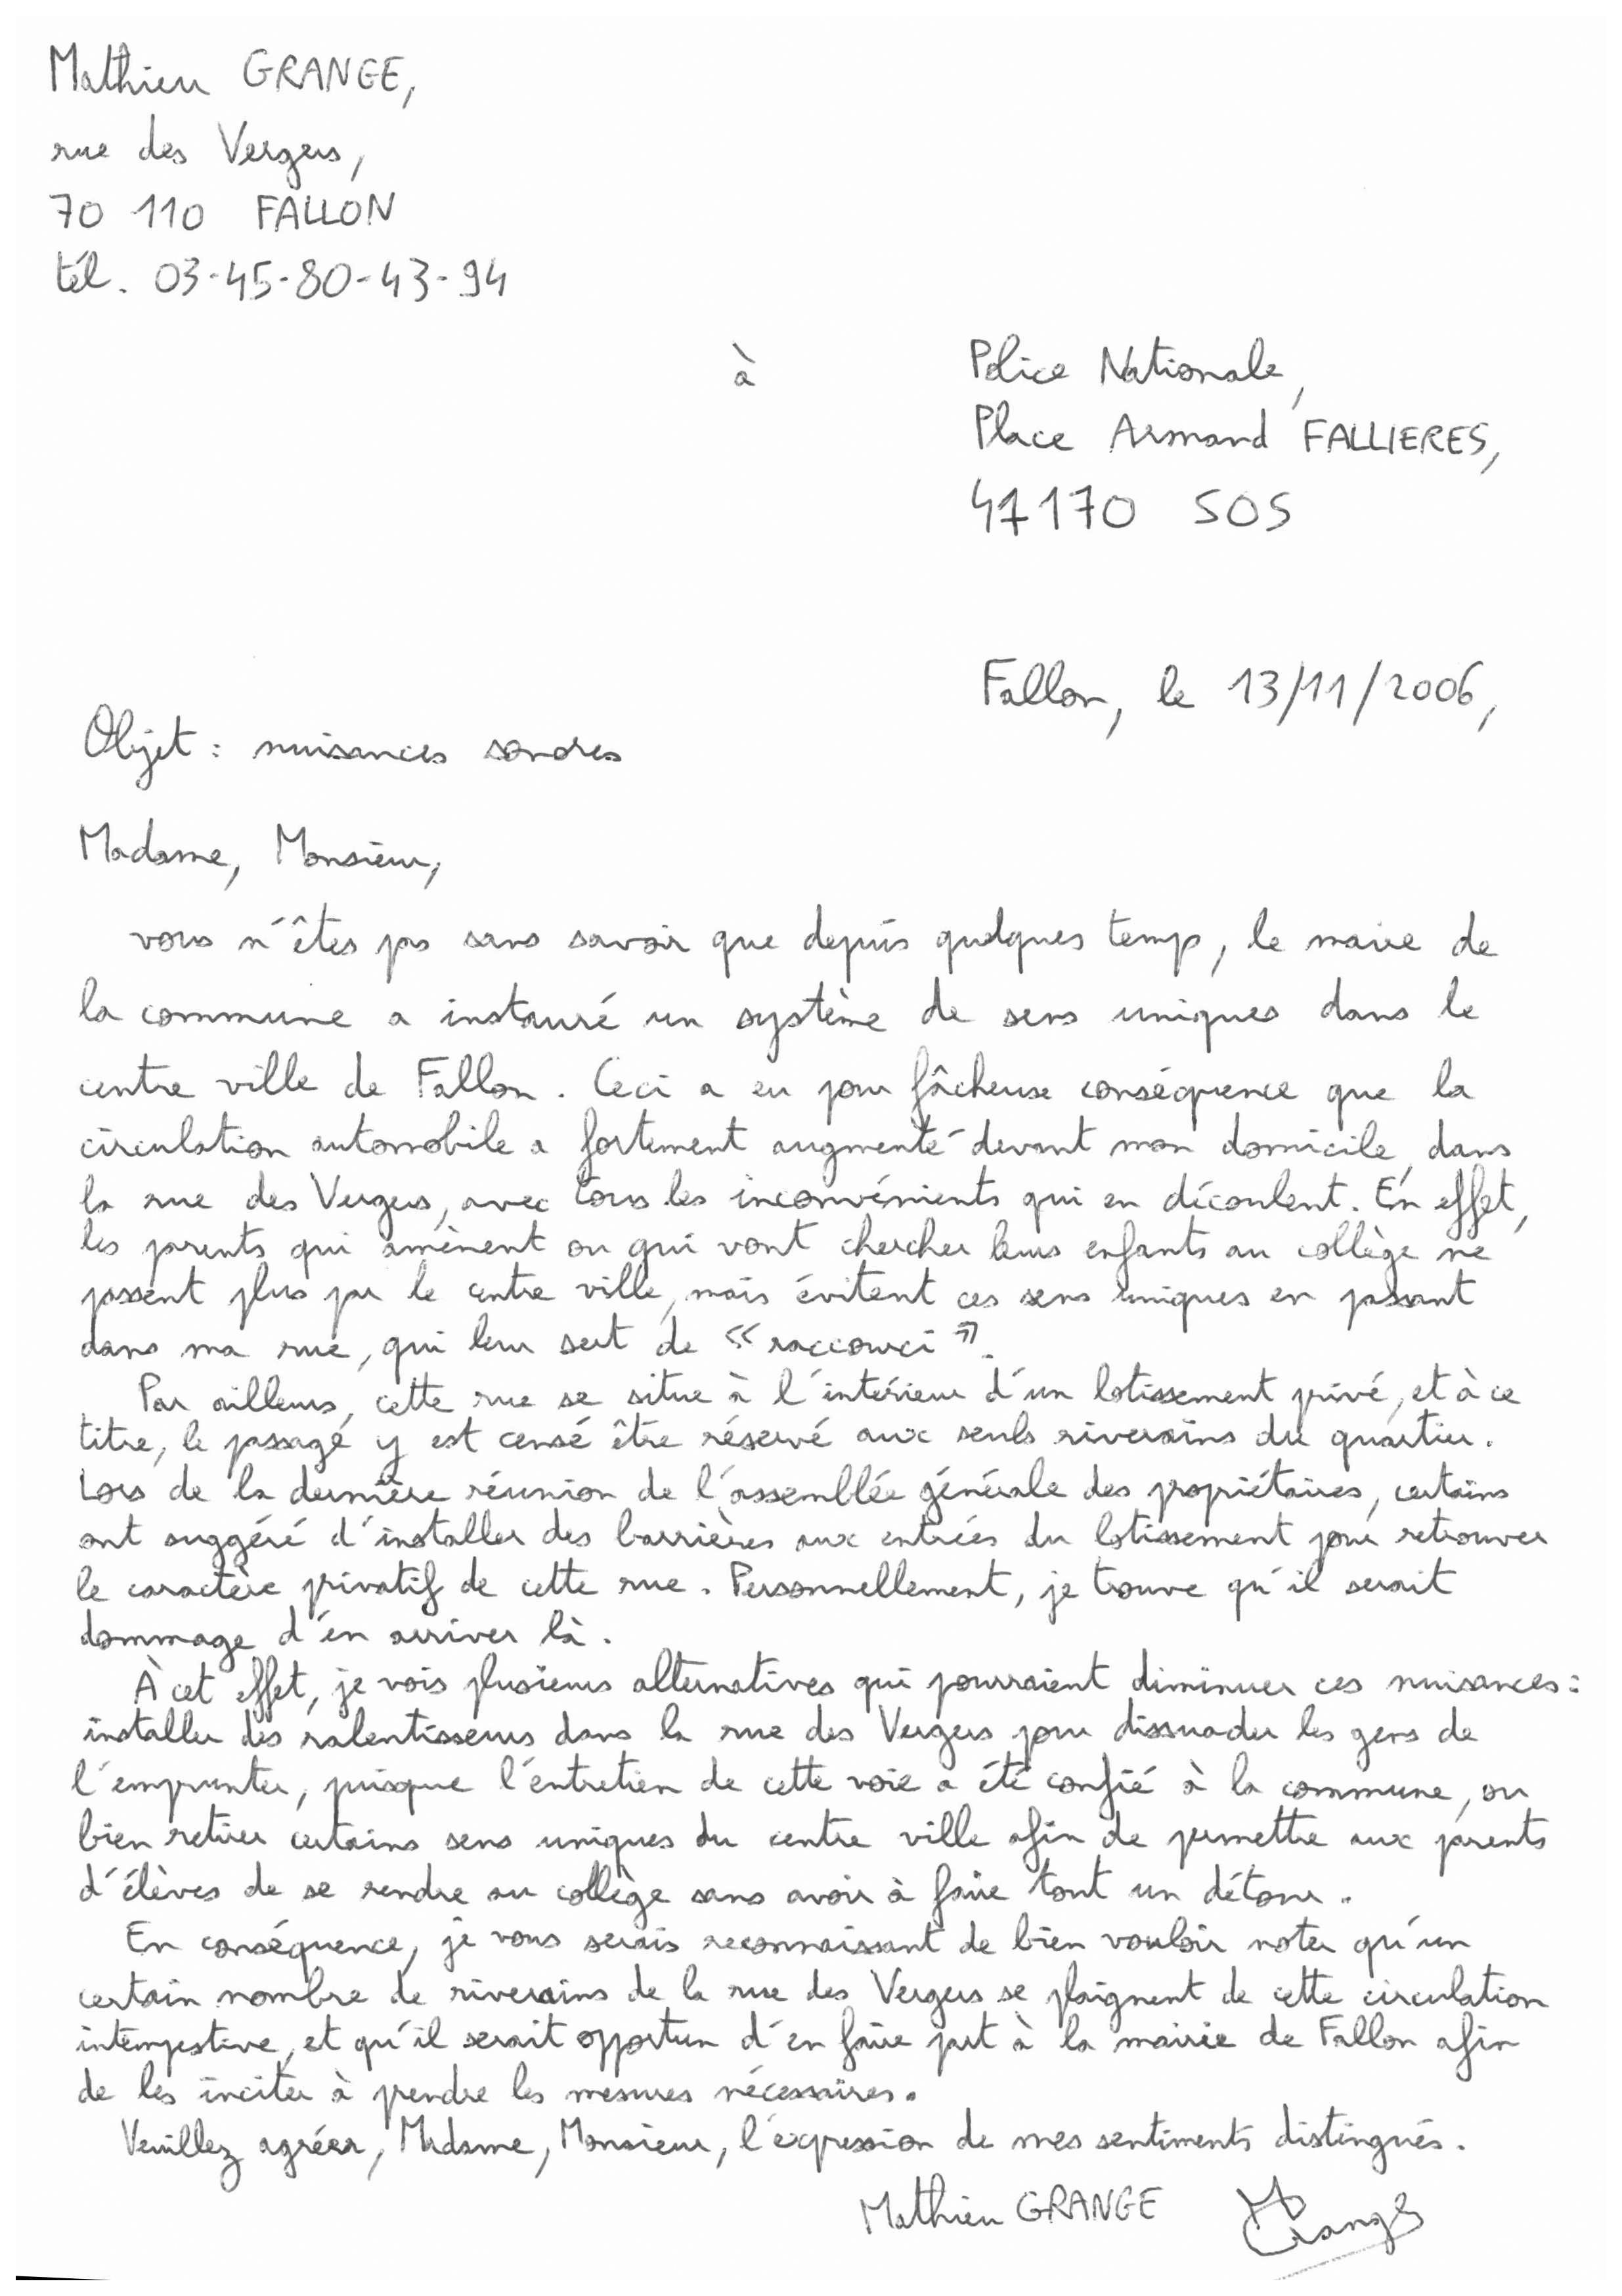 Mathieu GRANGE,
rue des Vergers,
70 110 FALLON
tél. 03-45-80-43-94
à
Police Nationale,
Place Armand FALLIERES,
47170 SOS
Fallon, le 13/11/2006,
Objet : nuisances sonores
Madame, Monsieur,
vous n'êtes pas sans savoir que depuis quelques temp, le maire de
la commune a instauré un système de sens uniques dans le
centre ville de Fallon. Ceci a eu pour fâcheuse conséquence que la
circulation automobile a fortement augmenté devant mon domicile, dans
la rue des Vergers, avec tous les inconvénients qui en découlent. En effet,
les parents qui amènent ou qui vont chercher leurs enfants au collège ne
passent plus par le centre ville, mais évitent ces sens uniques en passant
dans ma rue, qui leur sert de « raccourci ».
Par ailleurs, cette rue se situe à l'intérieur d'un lotissement privé, et à ce
titre, le passage y est censé être réservé aux seuls riverains du quartier.
Lors de la dernière réunion de l'assemblée générale des propriétaires, certains
ont suggéré d'installer des barrières aux entrées du lotissement pour retrouver
le caractère privatif de cette rue. Personnellement, je trouve qu'il serait
dommage d'en arriver là.
À cet effet, je vois plusieurs alternatives qui pourraient diminuer ces nuisances :
installer des ralentisseurs dans la rue des Vergers pour dissuader les gens de
l'emprunter, puisque l'entretien de cette voie a été confié à la commune, ou
bien retirer certains sens uniques du centre ville afin de permettre aux parents
d'élèves de se rendre au collège sans avoir à faire tout un détour.
En conséquence, je vous serais reconnaissant de bien vouloir noter qu'un
certain nombre de riverains de la rue des Vergers se plaignent de cette circulation
intempestive, et qu'il serait opportun d'en faire part à la mairie de Fallon afin
de les inciter à prendre les mesures nécessaires.
Veuillez agréer, Madame, Monsieur, l'expression de mes sentiments distingués.
Mathieu GRANGE MGrange